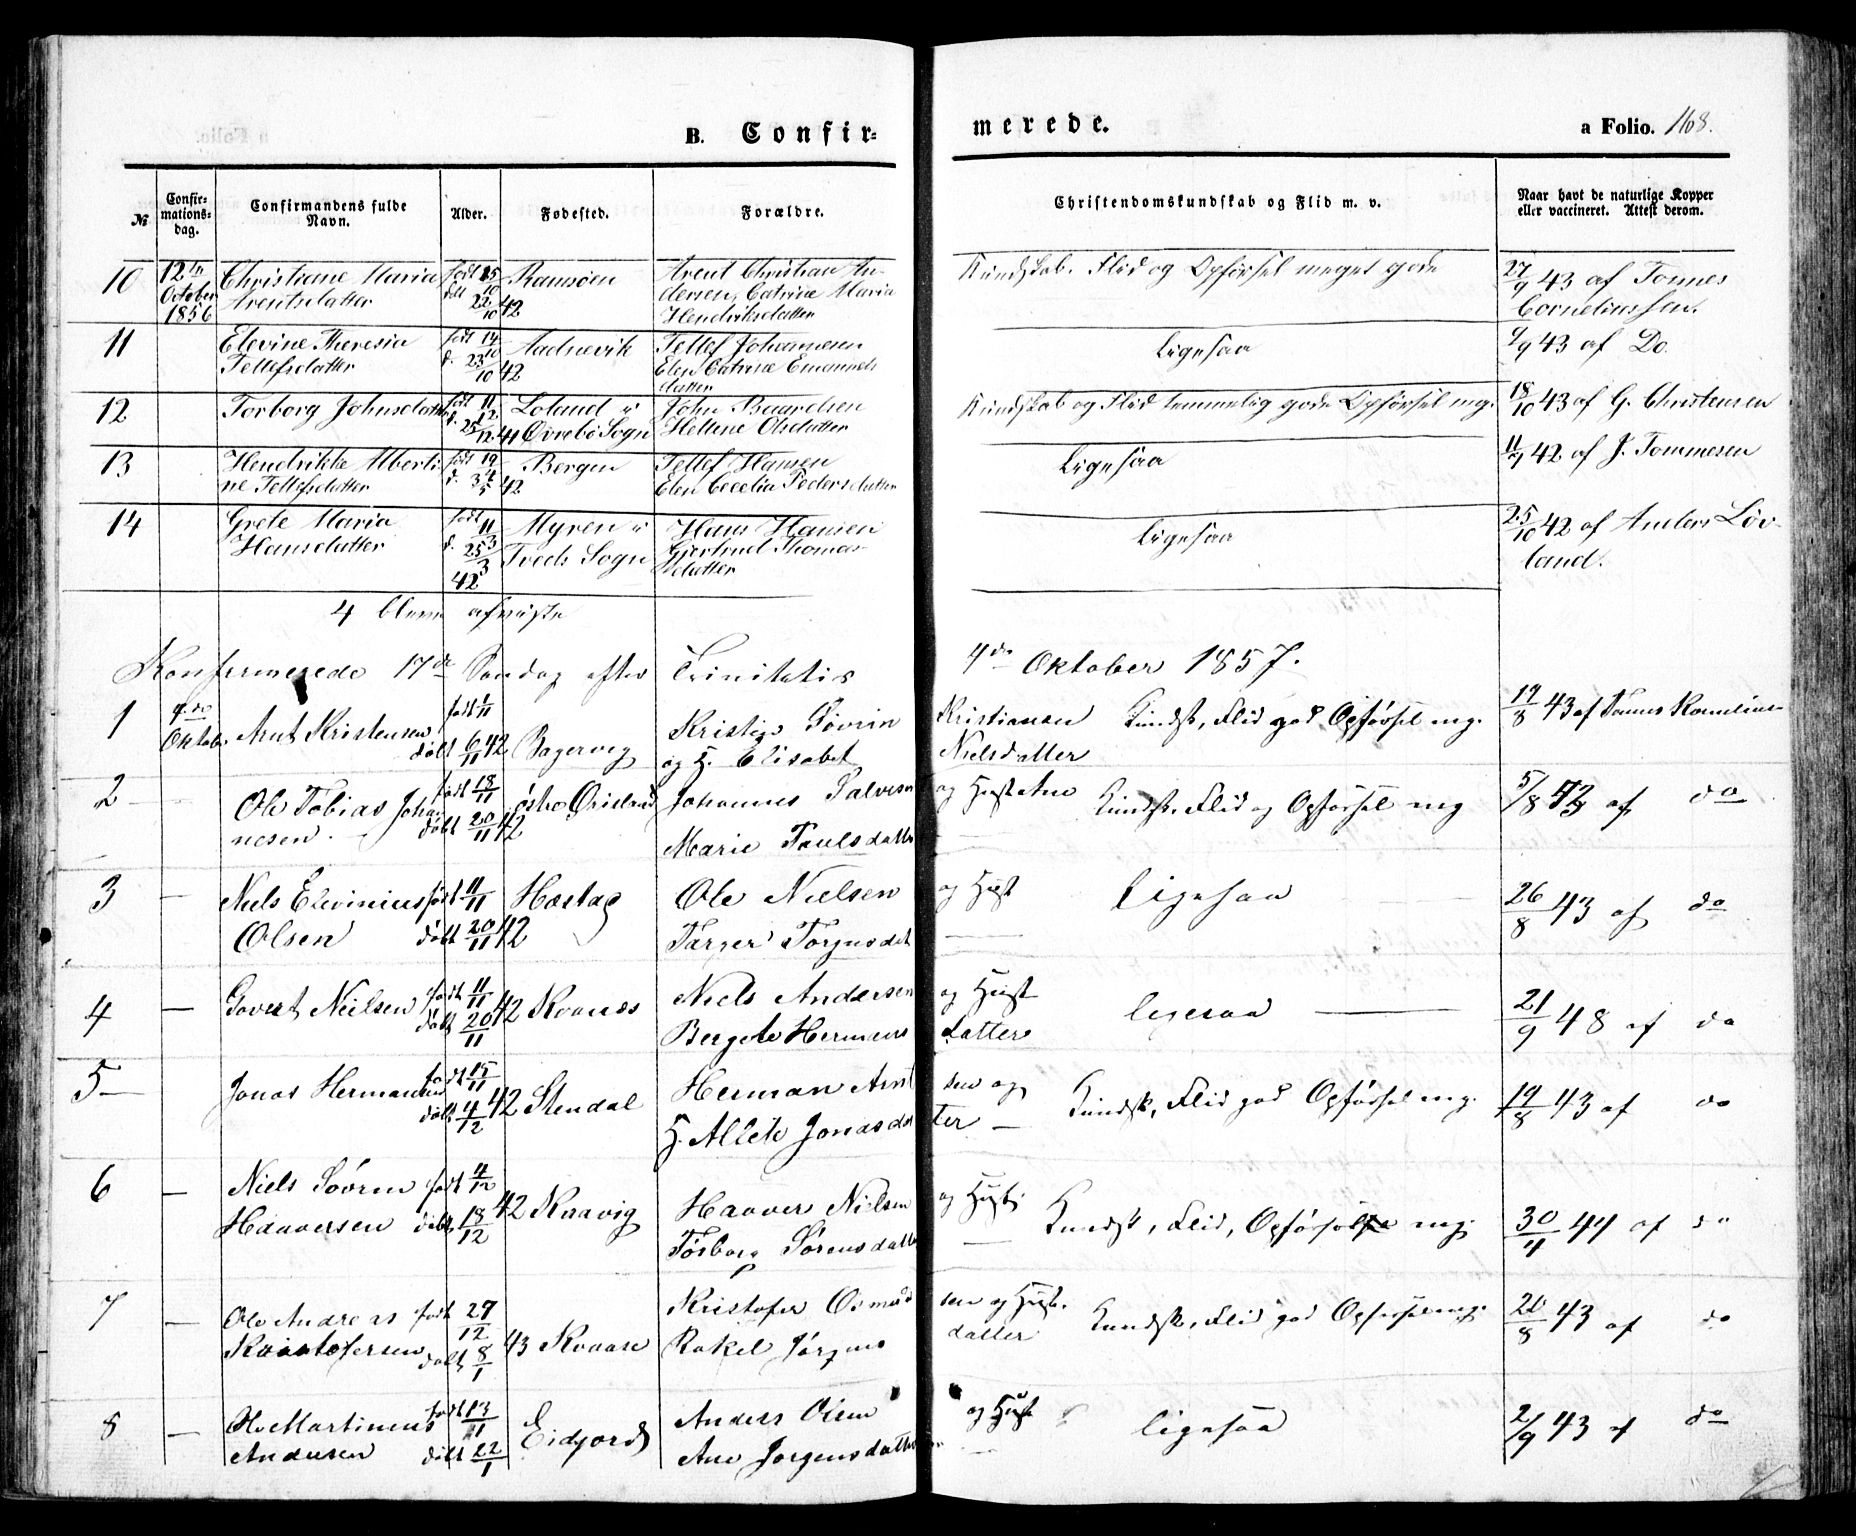 B. Confir-
merede.
a Folio. 168.
№
Confir-
mations-
dag.
Confirmandens fulde
Navn.
Alder.
Fødested.
Forældre.
Christendomskundskab og Flid m. v.
Naar havt de naturlige Kopper
eller vaccineret. Attest derom.
10 12te October 1856 Christiane Maria Arentsdatter født 15/10 døbt 22/10 42 Ramsøen Arent Christian Andersen, Catrine Maria Hendriksdatter Kundskab. Flid og Opførsel meget gode 27/9 43 af Tønnes Corneliussen.
11 Elevine Theresia Tellefsdatter født 14/10 d. 23/10 42 Aadnevik Tellef Johannesen Elen Catrine Emanuelsdatter Ligesaa 9/9 43 af Do.
12 Torborg Johnsdatter født 11/12 d. 25/12 41 Loland i Øvrebø Sogn John Baardsen Hellene Olsdatter Kundskab og Flid temmelig gode Opførsel mg. 18/10 43 af G. Christensen
13 Hendrikke Albertine Tellefsdatter født 19/4 d. 3/5 42 Bergen Tellef Hansen Elen Cecelia Pedersdatter Ligesaa 11/9 42 af J. Tommesen
14 Grete Maria Hansdatter født 11/3 d. 25/3 42 Myren i Tveds Sogn Hans Hansen Gjertrud Thomasdatter Ligesaa 25/10 42 af Anders Løvland.
4 bleve afviste
Konfirmerede 17de Søndag efter Trinitatis 4de Oktober 1857.
1 4de Oktob. Arnt Kristensen født 1/11 døbt 6/11 42 Bagervig Kristen Søvrin Kristiansen og H. Elisabet Nielsdatter Kundsk, Flid god Opførsel mg. 19/8 43 af Tønnes Kornelius
2 — Ole Tobias Johannesen. født 18/11 døbt 20/11 42 østre Øvisland Johannes Salvesen og Hust Ane Marie Paulsdatter Kundsk. Flid og Opførsel mg 5/8 43 af do
3 — Niels Elvinius Olsen født 11/11 døbt 20/11 42 Hæstag Ole Nielsen og Hust Targer Torgusdat Ligesaa 26/8 43 af do
4 — Govert Neilsen født 11/11 døbt 20/11 42 Kvanæs Niels Andersen og Hust Bergete Hermans datter ligesaa 21/9 48 af do
5 — Jonas Hermansen født 15/11 døbt 4/12 42 Stendal Herman Arntsen og H. Allete Jonasdatter Kundsk, Flid god Opførsel mg. 19/8 43 af do
6 — Niels Søvren Haaversen født 4/12 døbt 18/12 42 Knavig Haaver Nielsen og Hust Torborg Sørensdatter Kundsk, Flid, Opførsel mg. 30/4 44 af do
7 — Ole Andreas Kristofersen født 27/12 døbt 8/1 43 Kvaase Kristofer Osmundsen og Hust. Rakel Jørgensdatter Kundsk, Flid god Opførsel mg. 20/8 43 af do
8 — Ole Martineus Andersen født 13/11 døbt 22/1 Eidjord Anders Olsen og Hust Ane Jorgensdatter ligesaa 2/9 43 af do